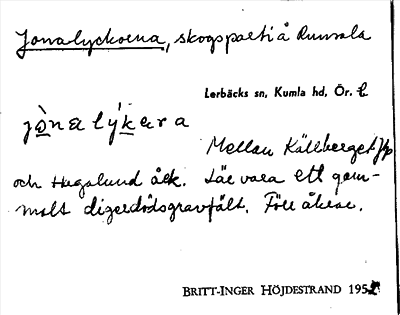 Jonalyckorna, skogsparti å Runsala
Lerbäcks sn, Kumla hd, Ör. l.
jònalýkara
Mellan Källberget
och Hagalund åek. Läe vara ett gam-
malt digerdödsgravfält. Förr åkrar.
BRITT-INGER HÖJDESTRAND 195